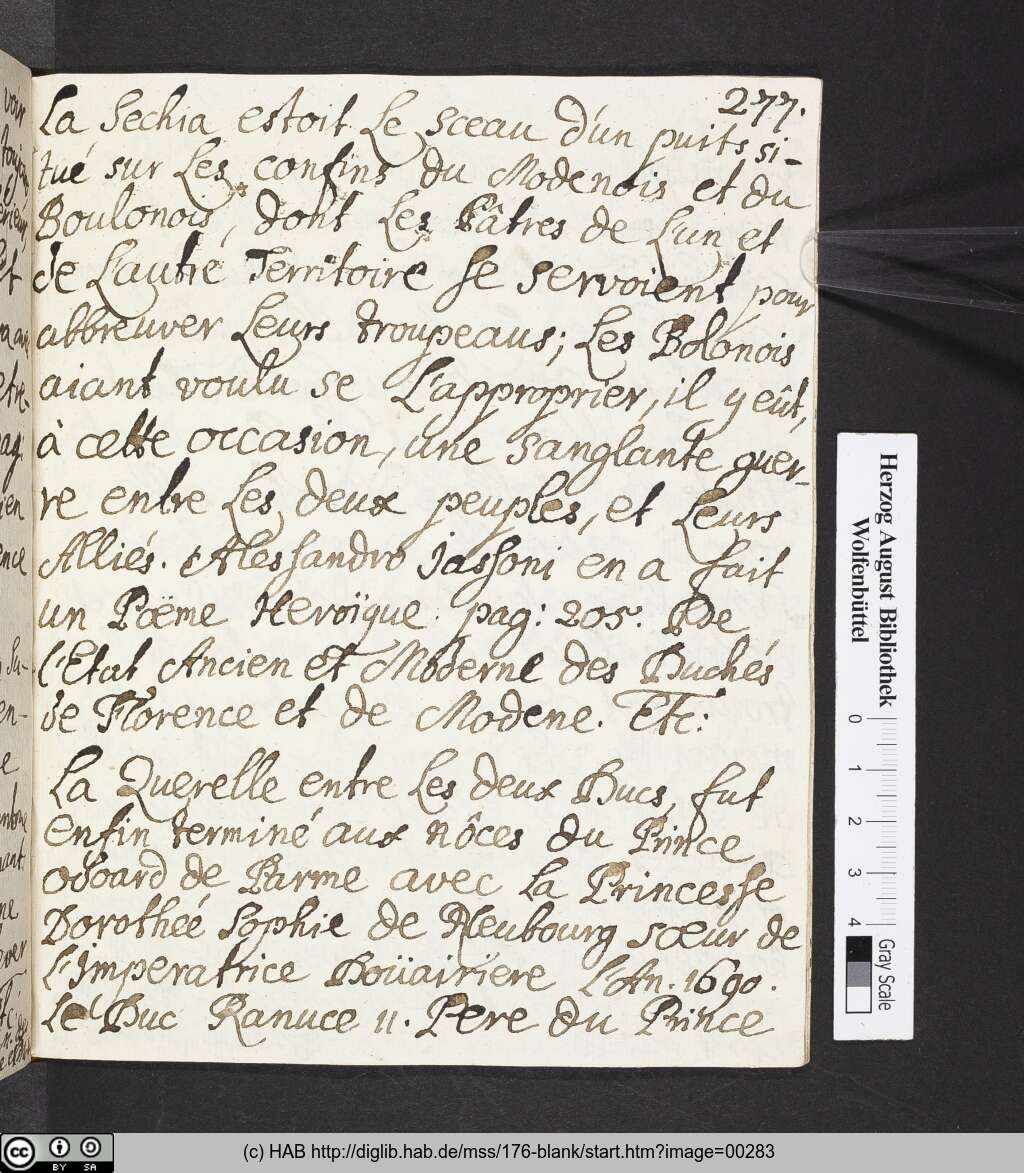 277.
La Sechia estoit Le sceau d'un puits si-
tué sur Les confins du Modenois et du
Boulonois, dont Les Pâtres de L'un et
de L'autre Territoire se servoient pour
abbreuver Leurs troupeaus; Les Bolonois
aiant voulu se L'approprier, il y eût,
à cette occasion, une sanglante guer-
re entre Les deux peuples, et Leurs
Alliés. Alessandro Jassoni en a fait
un Poëme Heroïque. pag: 205. De
l'Etat Ancien et Moderne des Duchés
de Florence et de Modene. Etc:
La Querelle entre Les deux Ducs, fut
enfin terminé aux nôces du Prince
Odoard de Parme avec la Princesse
Dorotheé Sophie de Neubourg sœur de
l'Imperatrice Doüarriere L'An. 1690.
Le Duc Ranuce II. Pere du Prince
Herzog August Bibliothek
Wolfenbüttel
0 1 2 3 4
Gray Scale
cc BY SA
(c) HAB http://diglib.hab.de/mss/176-blank/start.htm?image=00283